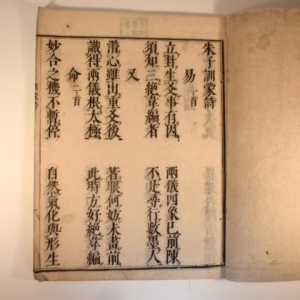 朱子訓蒙詩
易 二首
立卦生爻事有因 兩儀四象已前陳
須知三絕韋編者 不是尋行數墨人
又
潛心雖出重爻後 著眼何妨未畫前
識得兩儀根太極 此時方好絕韋編
命 二首
妙合之機不暫停 自然氣化與形生